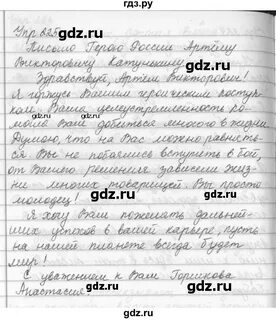 Упр 225
Письмо Герою России Артёму
Викторовичу Катунькину.
Здравствуй, Артём Викторович!
Я горжусь Вашим героическим поступ-
ком. Ваша целеустремленность по-
могла Вам добиться многого в жизни.
Думаю, что на Вас можно равнять-
ся. Вы не побоялись вступить в бой,
от Вашего решения зависели жиз-
ни многих товарищей. Вы просто
молодец!
Я хочу Вам пожелать дальней-
ших успехов в вашей карьере, пусть
на нашей планете всегда будет
мир!
С уважением к Вам Горшкова
Анастасия.
gdz.ru
gdz.ru
gdz.ru
gdz.ru
gdz.ru
gdz.ru
gdz.ru